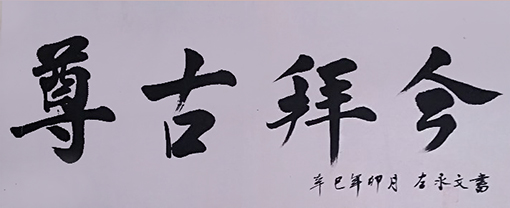 尊古拜今
辛巳年卯月 左承文書